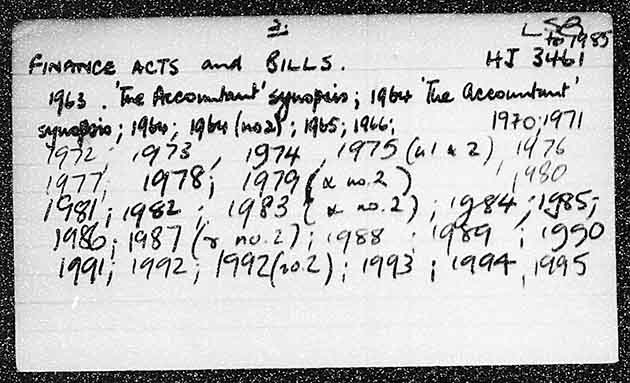 2.
LSG
to 1985
FINANCE ACTS and BILLS. HJ 3461
1963. 'The Accountant' synopsis; 1964 'The Accountant'
synopsis; 1964; 1964 (no2); 1965; 1966; 1970; 1971
1972, 1973, 1974, 1975 (n1 & 2), 1976
1977, 1978; 1979 (& no.2) 1980
1981; 1982; 1983 (& no.2); 1984; 1985;
1986; 1987 (& no.2); 1988; 1989; 1990
1991; 1992; 1992 (no.2); 1993; 1994, 1995